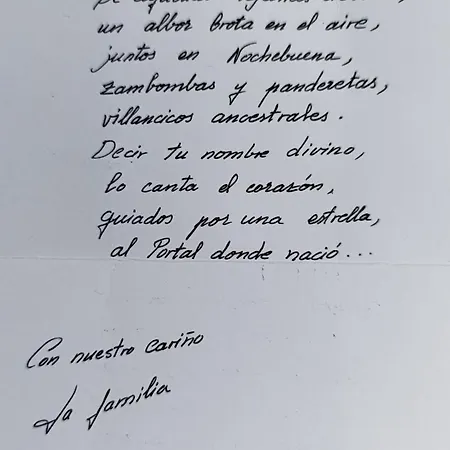 un albor brota en el aire,
juntos en Nochebuena,
zambombas y panderetas,
villancicos ancestrales.
Decir tu nombre divino,
lo canta el corazón,
guiados por una estrella,
al Portal donde nació...
Con nuestro cariño
La familia